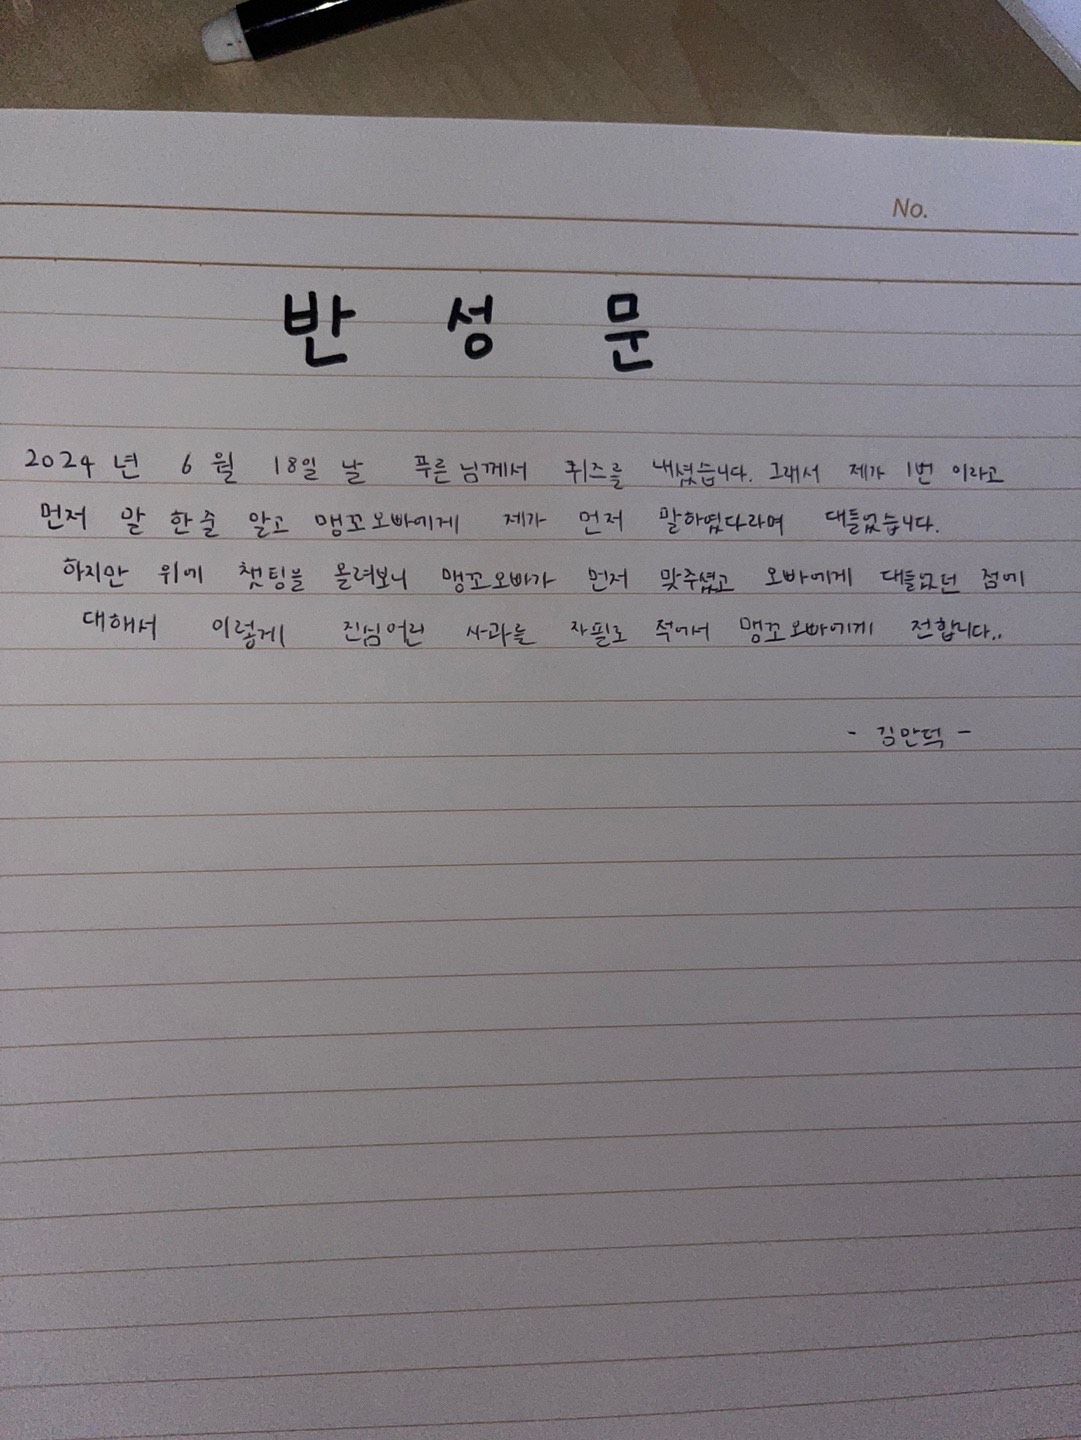 No.
반 성 문
2024 년 6 월 18일 날 푸른님께서 퀴즈를 내셨습니다. 그래서 제가 1번 이라고
먼저 말 한줄 알고 맹꼬오빠에게 제가 먼저 말하였다라며 대들었습니다.
하지만 위에 챗팅을 올려보니 맹꼬오빠가 먼저 맞추셨고 오빠에게 대들었던 점에
대해서 이렇게 진심어린 사과를 자필로 적어서 맹꼬오빠에게 전합니다..
- 김안덕 -